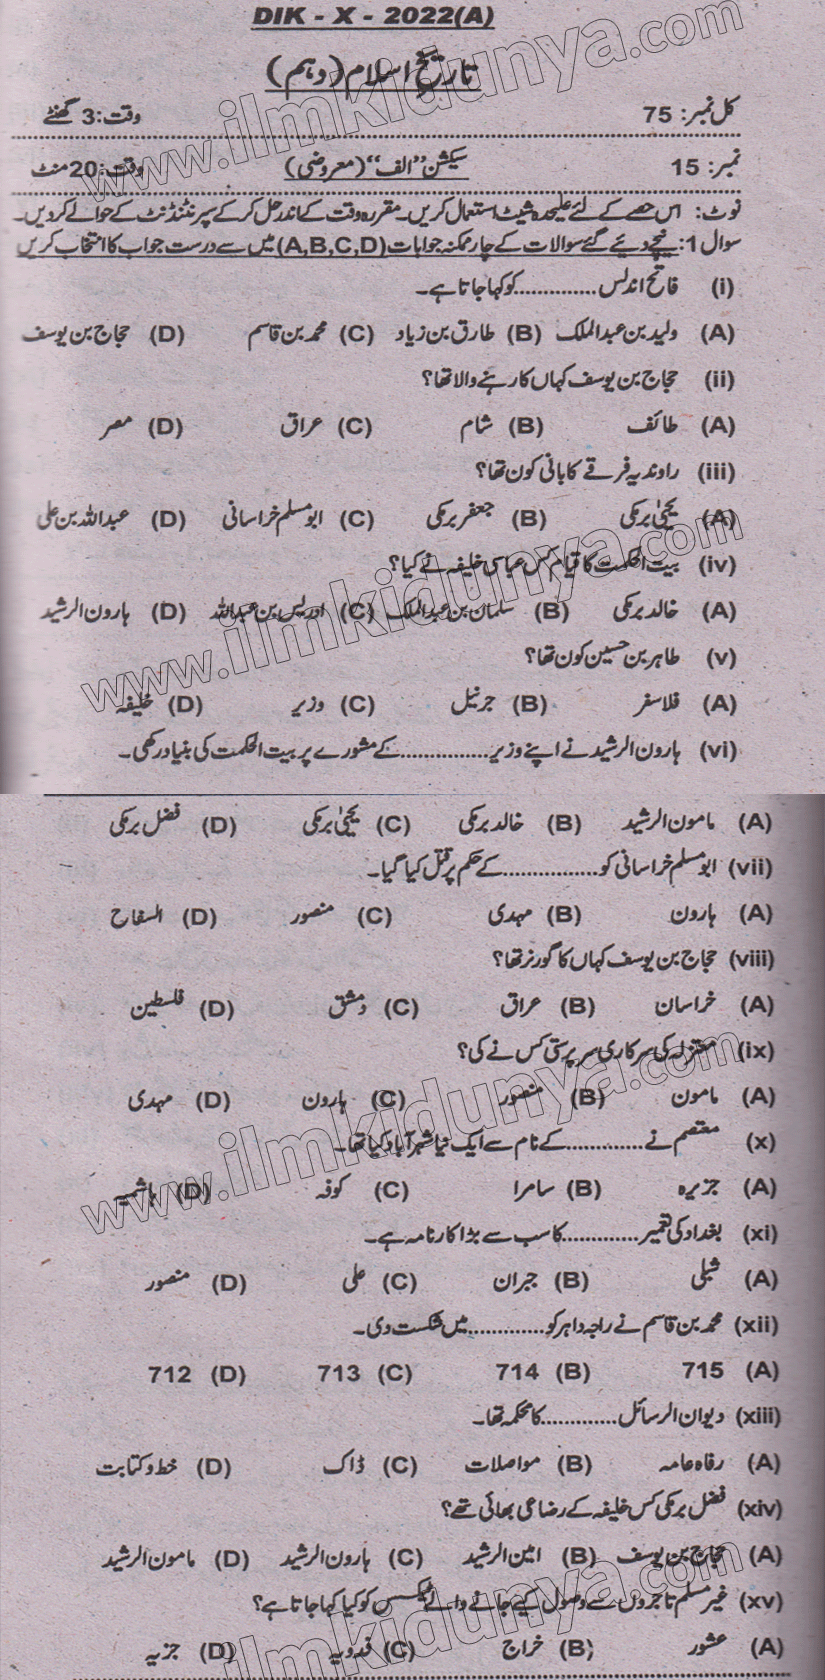 DIK - X - 2022(A)
تاریخِ اسلام (دہم)
کل نمبر: 75 وقت: 3 گھنٹے
نمبر: 15 سیکشن "الف" (معروضی) وقت: 20 منٹ
نوٹ: اس حصے کے لئے علیحدہ شیٹ استعمال کریں۔ مقررہ وقت کے اندر حل کر کے سپرنٹنڈنٹ کے حوالے کردیں۔
سوال 1: نیچے دیئے گئے سوالات کے چار ممکنہ جوابات (A,B,C,D) میں سے درست جواب کا انتخاب کریں
(i) فاتح اندلس ..............کو کہا جاتا ہے۔
(A) ولید بن عبدالملک (B) طارق بن زیاد (C) محمد بن قاسم (D) حجاج بن یوسف
(ii) حجاج بن یوسف کہاں کا رہنے والا تھا؟
(A) طائف (B) شام (C) عراق (D) مصر
(iii) راوندیہ فرقے کا بانی کون تھا؟
(A) یحییٰ برمکی (B) جعفر برمکی (C) ابو مسلم خراسانی (D) عبداللہ بن علی
(iv) بیت الحکمت کا قیام کس عباسی خلیفہ نے کیا؟
(A) خالد برمکی (B) سلمان بن عبدالملک (C) ادریس بن عبداللہ (D) ہارون الرشید
(v) طاہر بن حسین کون تھا؟
(A) فلاسفر (B) جرنیل (C) وزیر (D) خلیفہ
(vi) ہارون الرشید نے اپنے وزیر ..............کے مشورے پر بیت الحکمت کی بنیاد رکھی۔
(A) مامون الرشید (B) خالد برمکی (C) یحییٰ برمکی (D) فضل برمکی
(vii) ابو مسلم خراسانی کو ..............کے حکم پر قتل کیا گیا۔
(A) ہارون (B) مہدی (C) منصور (D) السفاح
(viii) حجاج بن یوسف کہاں کا گورنر تھا؟
(A) خراسان (B) عراق (C) دمشق (D) فلسطین
(ix) معتزلہ کی سرکاری سرپرستی کس نے کی؟
(A) مامون (B) منصور (C) ہارون (D) مہدی
(x) معتصم نے ............کے نام سے ایک نیا شہر آباد کیا تھا۔
(A) جزیرہ (B) سامرا (C) کوفہ (D) ہاشمیہ
(xi) بغداد کی تعمیر ............کا سب سے بڑا کارنامہ ہے۔
(A) شبلی (B) جبران (C) علی (D) منصور
(xii) محمد بن قاسم نے راجہ داہر کو ............میں شکست دی۔
(A) 715 (B) 714 (C) 713 (D) 712
(xiii) دیوان الرسائل ............کا محکمہ تھا۔
(A) رفاہ عامہ (B) مواصلات (C) ڈاک (D) خط و کتابت
(xiv) فضل برمکی کس خلیفہ کے رضاعی بھائی تھے؟
(A) حجاج بن یوسف (B) امین الرشید (C) ہارون الرشید (D) مامون الرشید
(xv) غیر مسلم تاجروں سے وصول کیے جانے والے ٹیکس کو کیا کہا جاتا ہے؟
(A) عشور (B) خراج (C) فدویہ (D) جزیہ
www.ilmkidunya.com
www.ilmkidunya.com
www.ilmkidunya.com
www.ilmkidunya.com